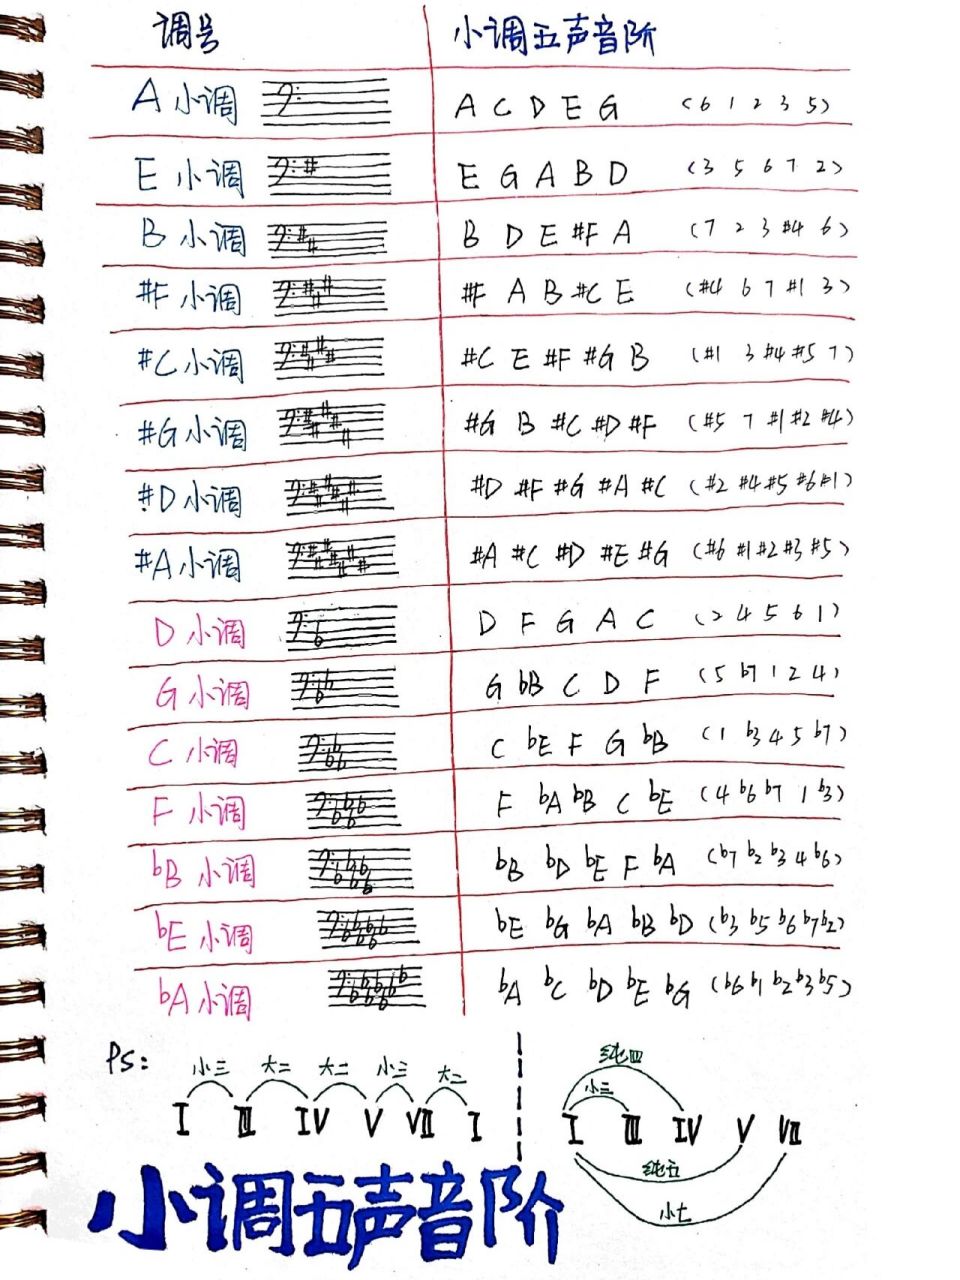 调号 小调五声音阶
A 小调 A C D E G (6 1 2 3 5)
E 小调 # E G A B D (3 5 6 7 2)
B 小调 # # B D E #F A (7 2 3 #4 6)
#F 小调 # # # #F A B #C E (#4 6 7 #1 3)
#C 小调 # # # # #C E #F #G B (#1 3 #4 #5 7)
#G 小调 # # # # # #G B #C #D #F (#5 7 #1 #2 #4)
#D 小调 # # # # # # #D #F #G #A #C (#2 #4 #5 #6 #1)
#A 小调 # # # # # # # #A #C #D #E #G (#6 #1 #2 #3 #5)
D 小调 b D F G A C (2 4 5 6 1)
G 小调 b b G bB C D F (5 b7 1 2 4)
C 小调 b b b C bE F G bB (1 b3 4 5 b7)
F 小调 b b b b F bA bB C bE (4 b6 b7 1 b3)
bB 小调 b b b b b bB bD bE F bA (b7 b2 b3 4 b6)
bE 小调 b b b b b b bE bG bA bB bD (b3 b5 b6 b7 b2)
bA 小调 b b b b b b b bA bC bD bE bG (b6 b1 b2 b3 b5)
PS:
小三 大二 大二 小三 大二
I III IV V VII I
纯四
小三
I III IV V VII
纯五
小七
小调五声音阶